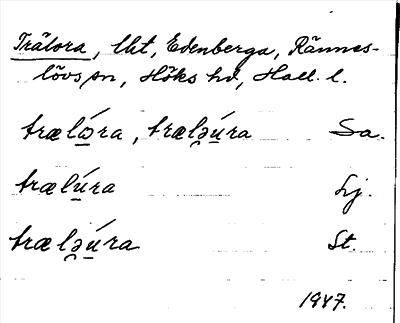 Trälora, lht, Edenberga, Rännes-
lövs sn, Höks hd, Hall. l.
trælώ̲ra, trælə̯ú̲ra Sa.
trælú̲ra Lj.
trælə̯ú̲ra St.
1947.